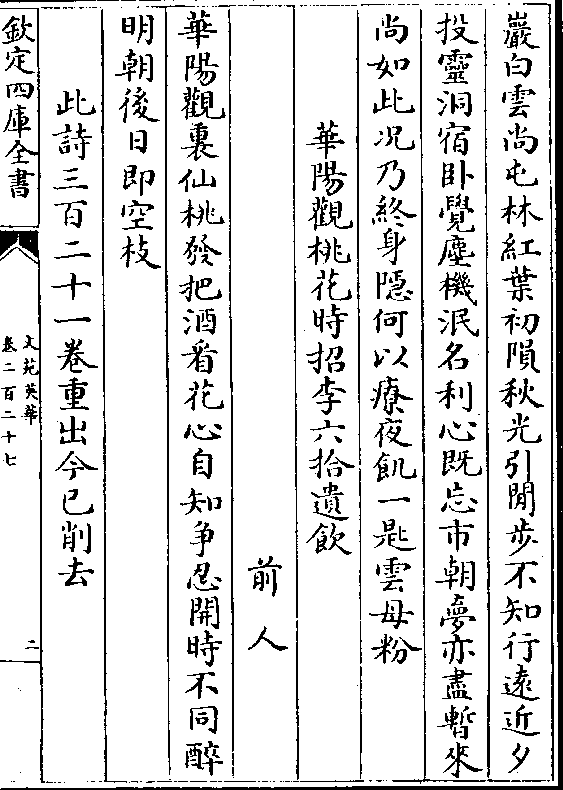 巖白雲尚屯林紅葉初隕秋光引閒步不知行遠近夕
投靈洞宿卧覺塵機泯名利心既忘市朝夢亦盡暫來
尚如此况乃終身隱何以療夜飢一匙雲母粉
華陽觀桃花時招李六拾遺飲
前人
華陽觀裏仙桃發把酒看花心自知争忍開時不同醉
明朝後日即空枝
此詩三百二十一卷重出今已削去
欽定四庫全書
文苑英華
卷二百二十七
二